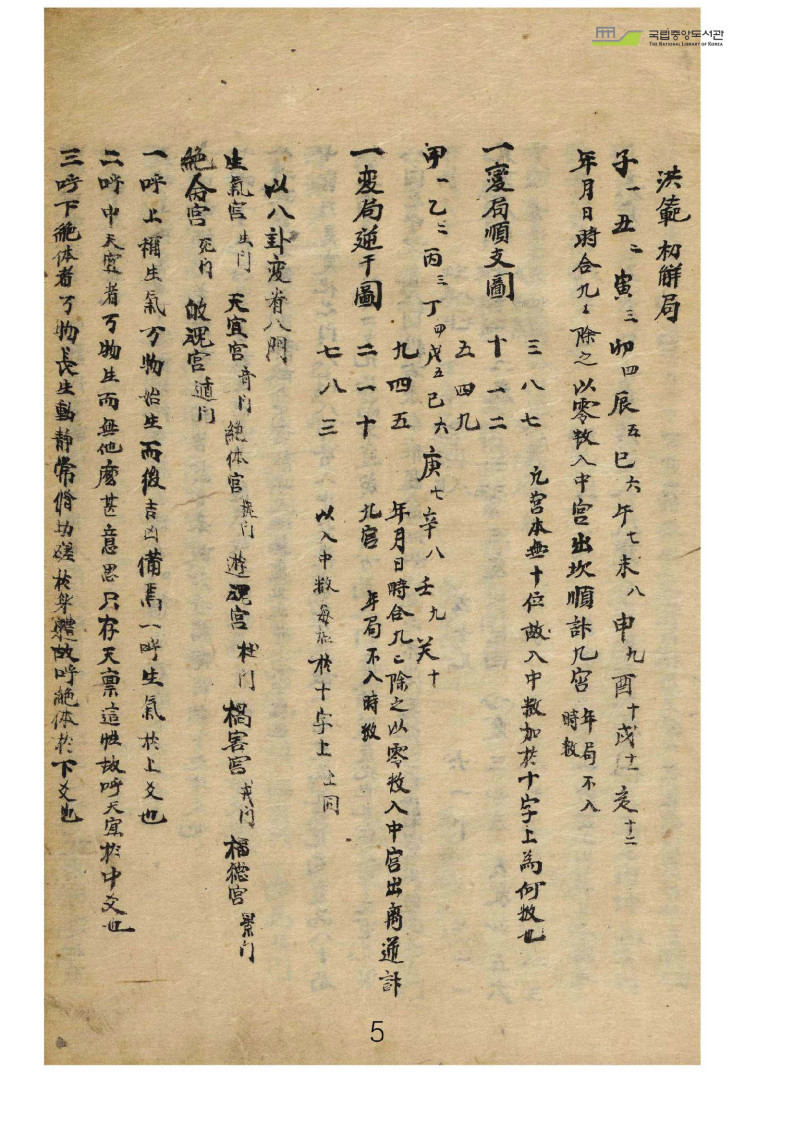 국립중앙도서관
THE NATIONAL LIBRARY OF KOREA
洪範初解局
子一丑二寅三卯四辰五巳六午七未八申九酉十戌十一亥十二
年月日時合九々除之以零数入中宮出坎順計九宮 年局不入時数
三八七 九宮本無十位故入中数加於十字上為何数也
一變局順支圖 十一二
五四九
甲一乙二丙三丁四戊五己六庚七辛八壬九癸十
九四五 年月日時合九々除之以零数入中宮出离逆計
一変局逆干圖 二一十 九宮 年局不入時数
七八三 以入中数每加於十字上 仝同
以八卦変看八門
生氣宮 生門 天宜宮 奇門 絶体宮 遊魂宮 杜門 禍害宮 福德宮 景門
絶命宮 死門 歸魂宮
一呼上稱生氣万物始生而後吉凶備焉一呼生氣於上爻也
二呼中天宜者万物生而無他麽甚意思只存天禀這性故呼天宜於中爻也
三呼下絶体者万物長生動靜常於身體故呼絶体於下爻也
5